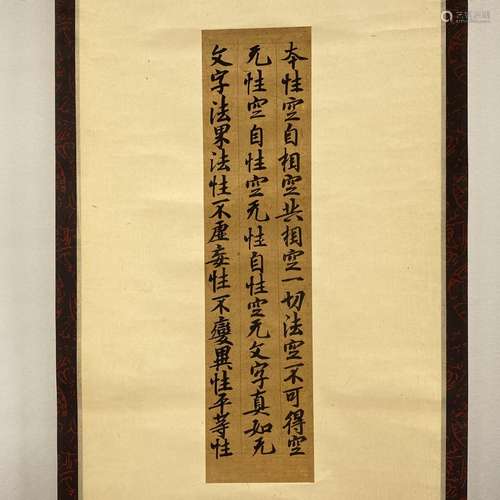 本性空自相空共相空一切法空不可得空
无性空自性空无性自性空无文字真如无
文字法界法性不虚妄性不變異性平等性